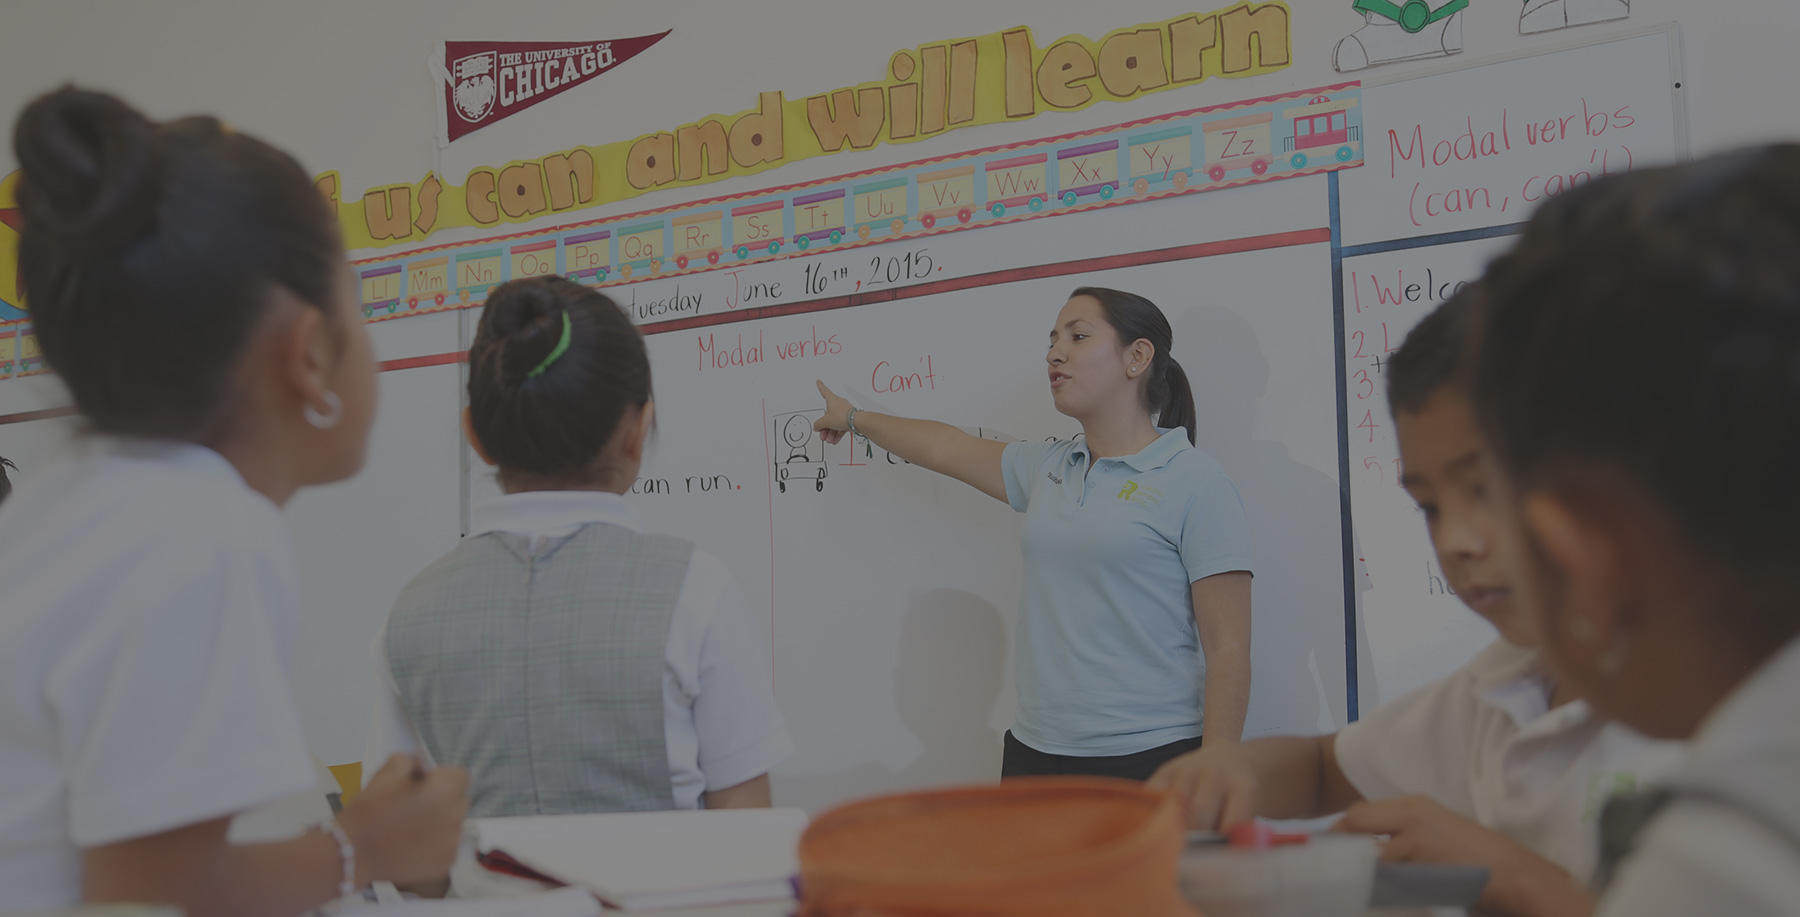 THE UNIVERSITY OF
CHICAGO
us can and will learn
Ll Mm Nn Oo Pp Qq Rr Ss Tt Uu Vv Ww Xx Yy Zz
Tuesday June 16TH, 2015.
Modal verbs
(can, can't)
Modal verbs
Can't
can run.
1.
2. L
3.
4.
5.